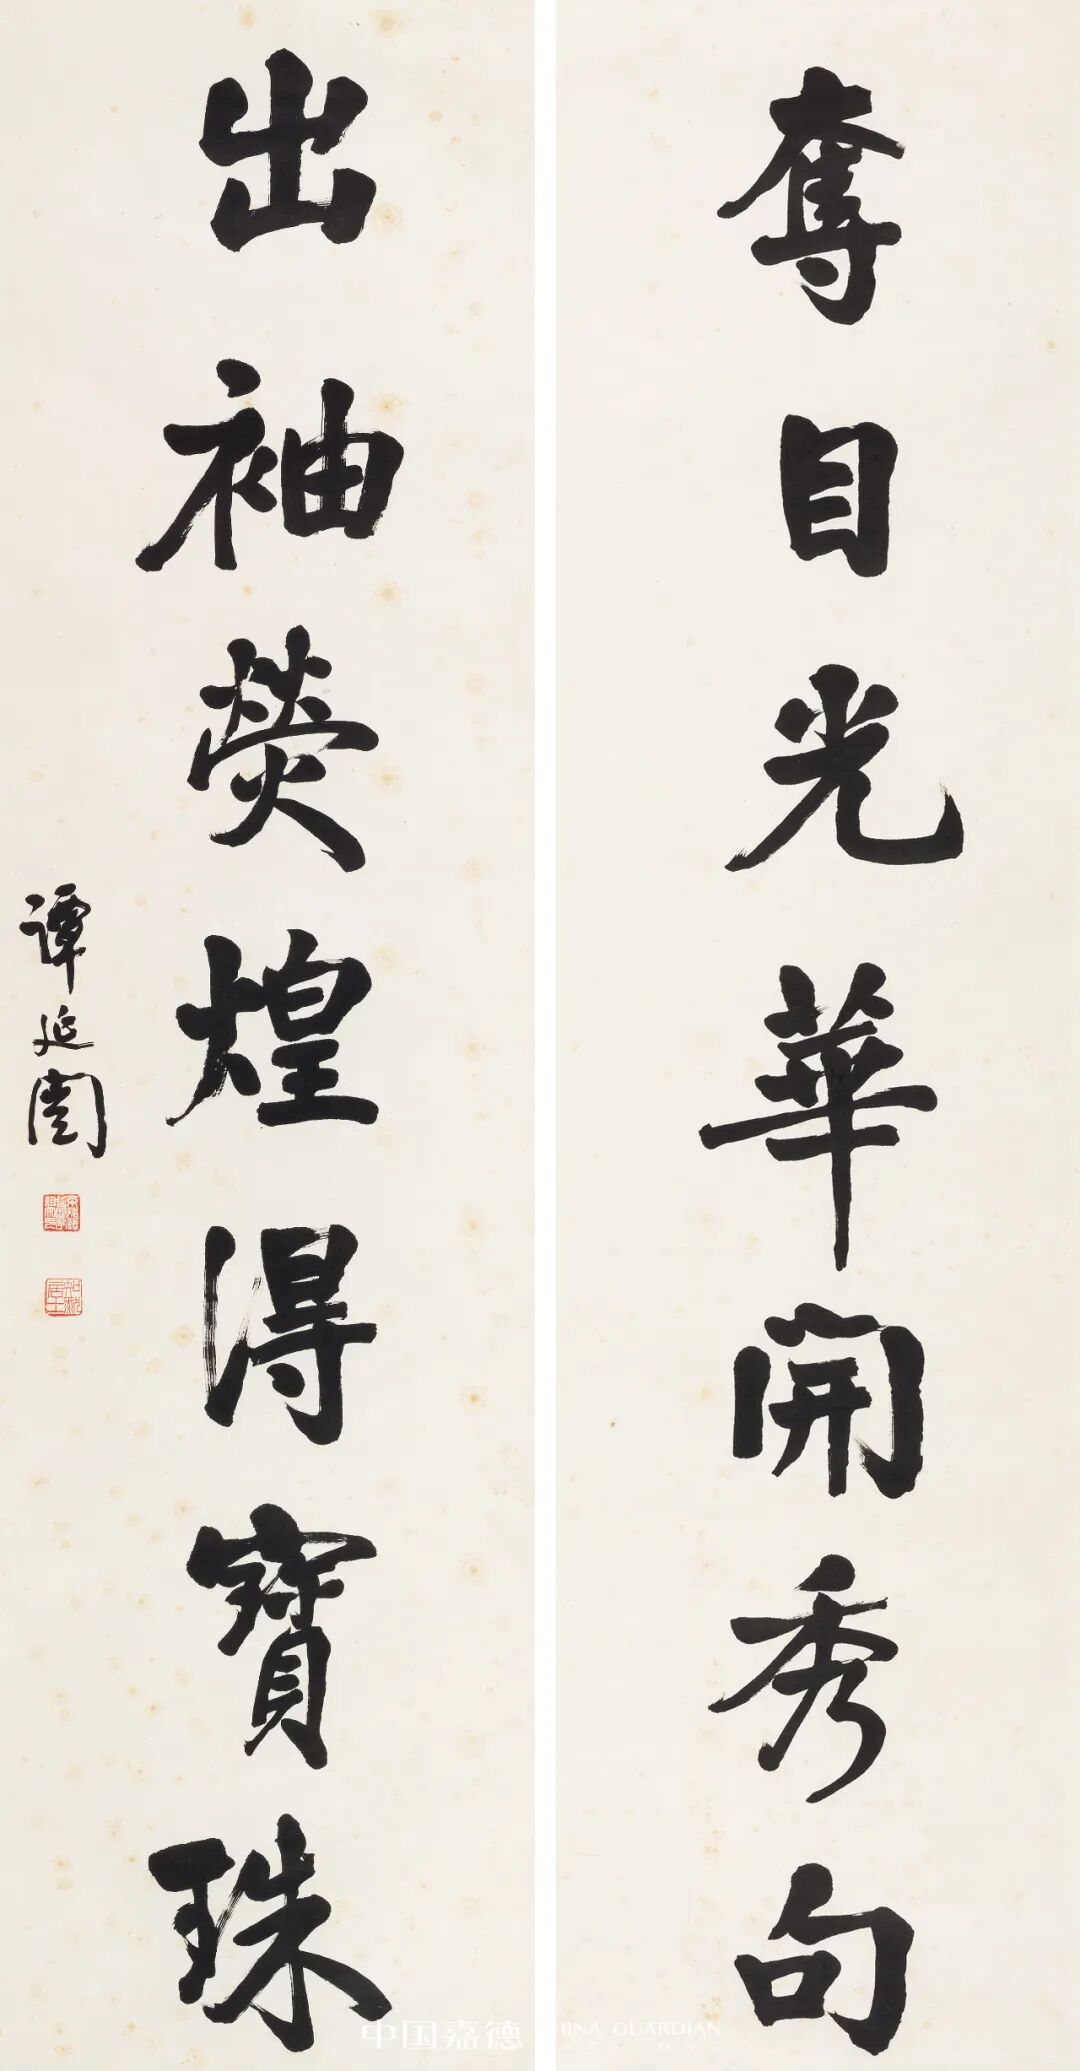 奪目光華開秀句
出袖熒煌得寶珠
譚延闓
中国嘉德
CHINA GUARDIAN